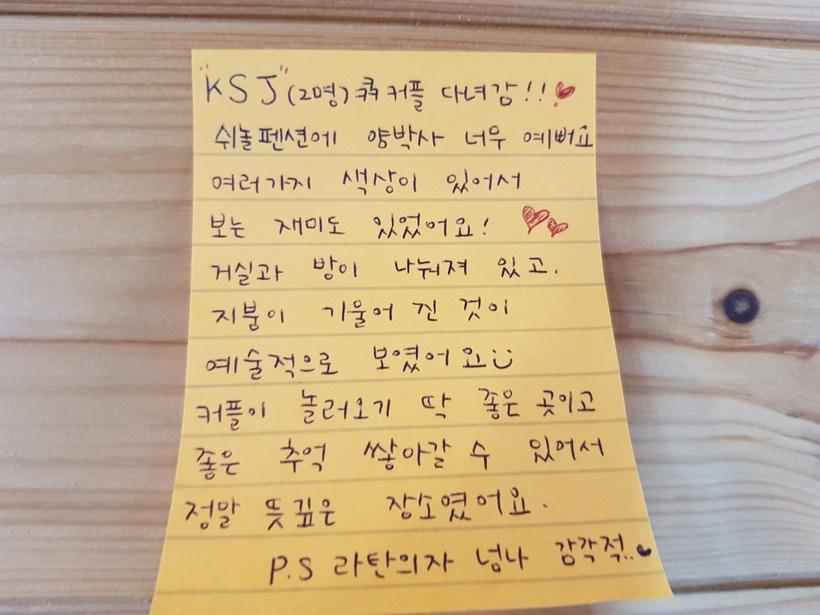 "KSJ" (20명) 쿡 커플 다녀감!!♥
쉬놀펜션에 양박사 너무 예뻐요
여러가지 색상이 있어서
보는 재미도 있었어요! ♡♡
거실과 방이 나눠져 있고.
지붕이 기울어 진 것이
예술적으로 보였어요
커플이 놀러오기 딱 좋은 곳이고
좋은 추억 쌓아갈 수 있어서
정말 뜻깊은 장소였어요.
P.S 라탄의자 넘나 감각적..♥